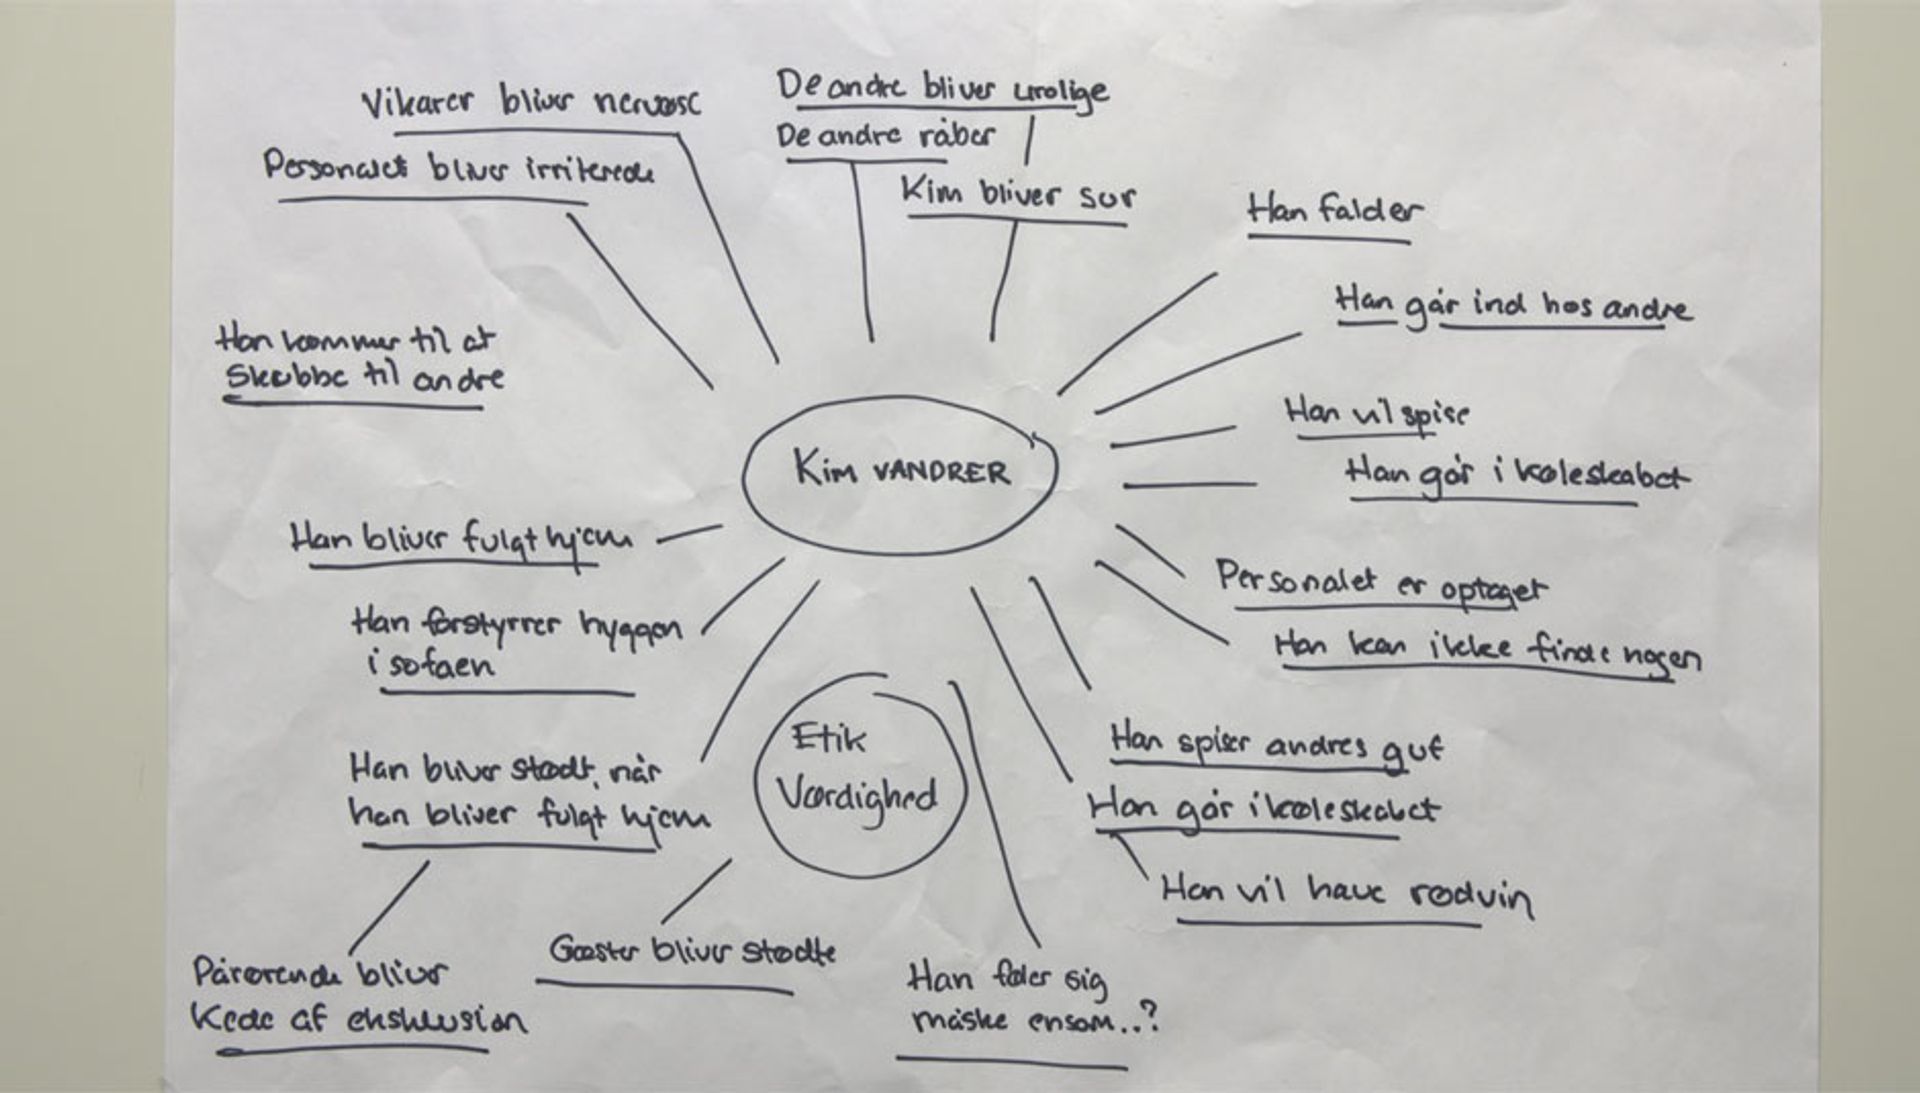 Vikarer bliver nervøse
Personalet bliver irriterede
De andre bliver urolige
De andre råber
Kim bliver sur
Han falder
Han går ind hos andre
Han kommer til at
Skubbe til andre
Han vil spise
Han går i køleskabet
Kim VANDRER
Han bliver fulgt hjem
Han forstyrrer hyggen
i sofaen
Personalet er optaget
Han kan ikke finde nogen
Han bliver stødt, når
han bliver fulgt hjem
Etik
Værdighed
Han spiser andres guf
Han går i køleskabet
Han vil have rødvin
Pårørende bliver
Kede af eksklusion
Gæster bliver stødte
Han føler sig
måske ensom..?